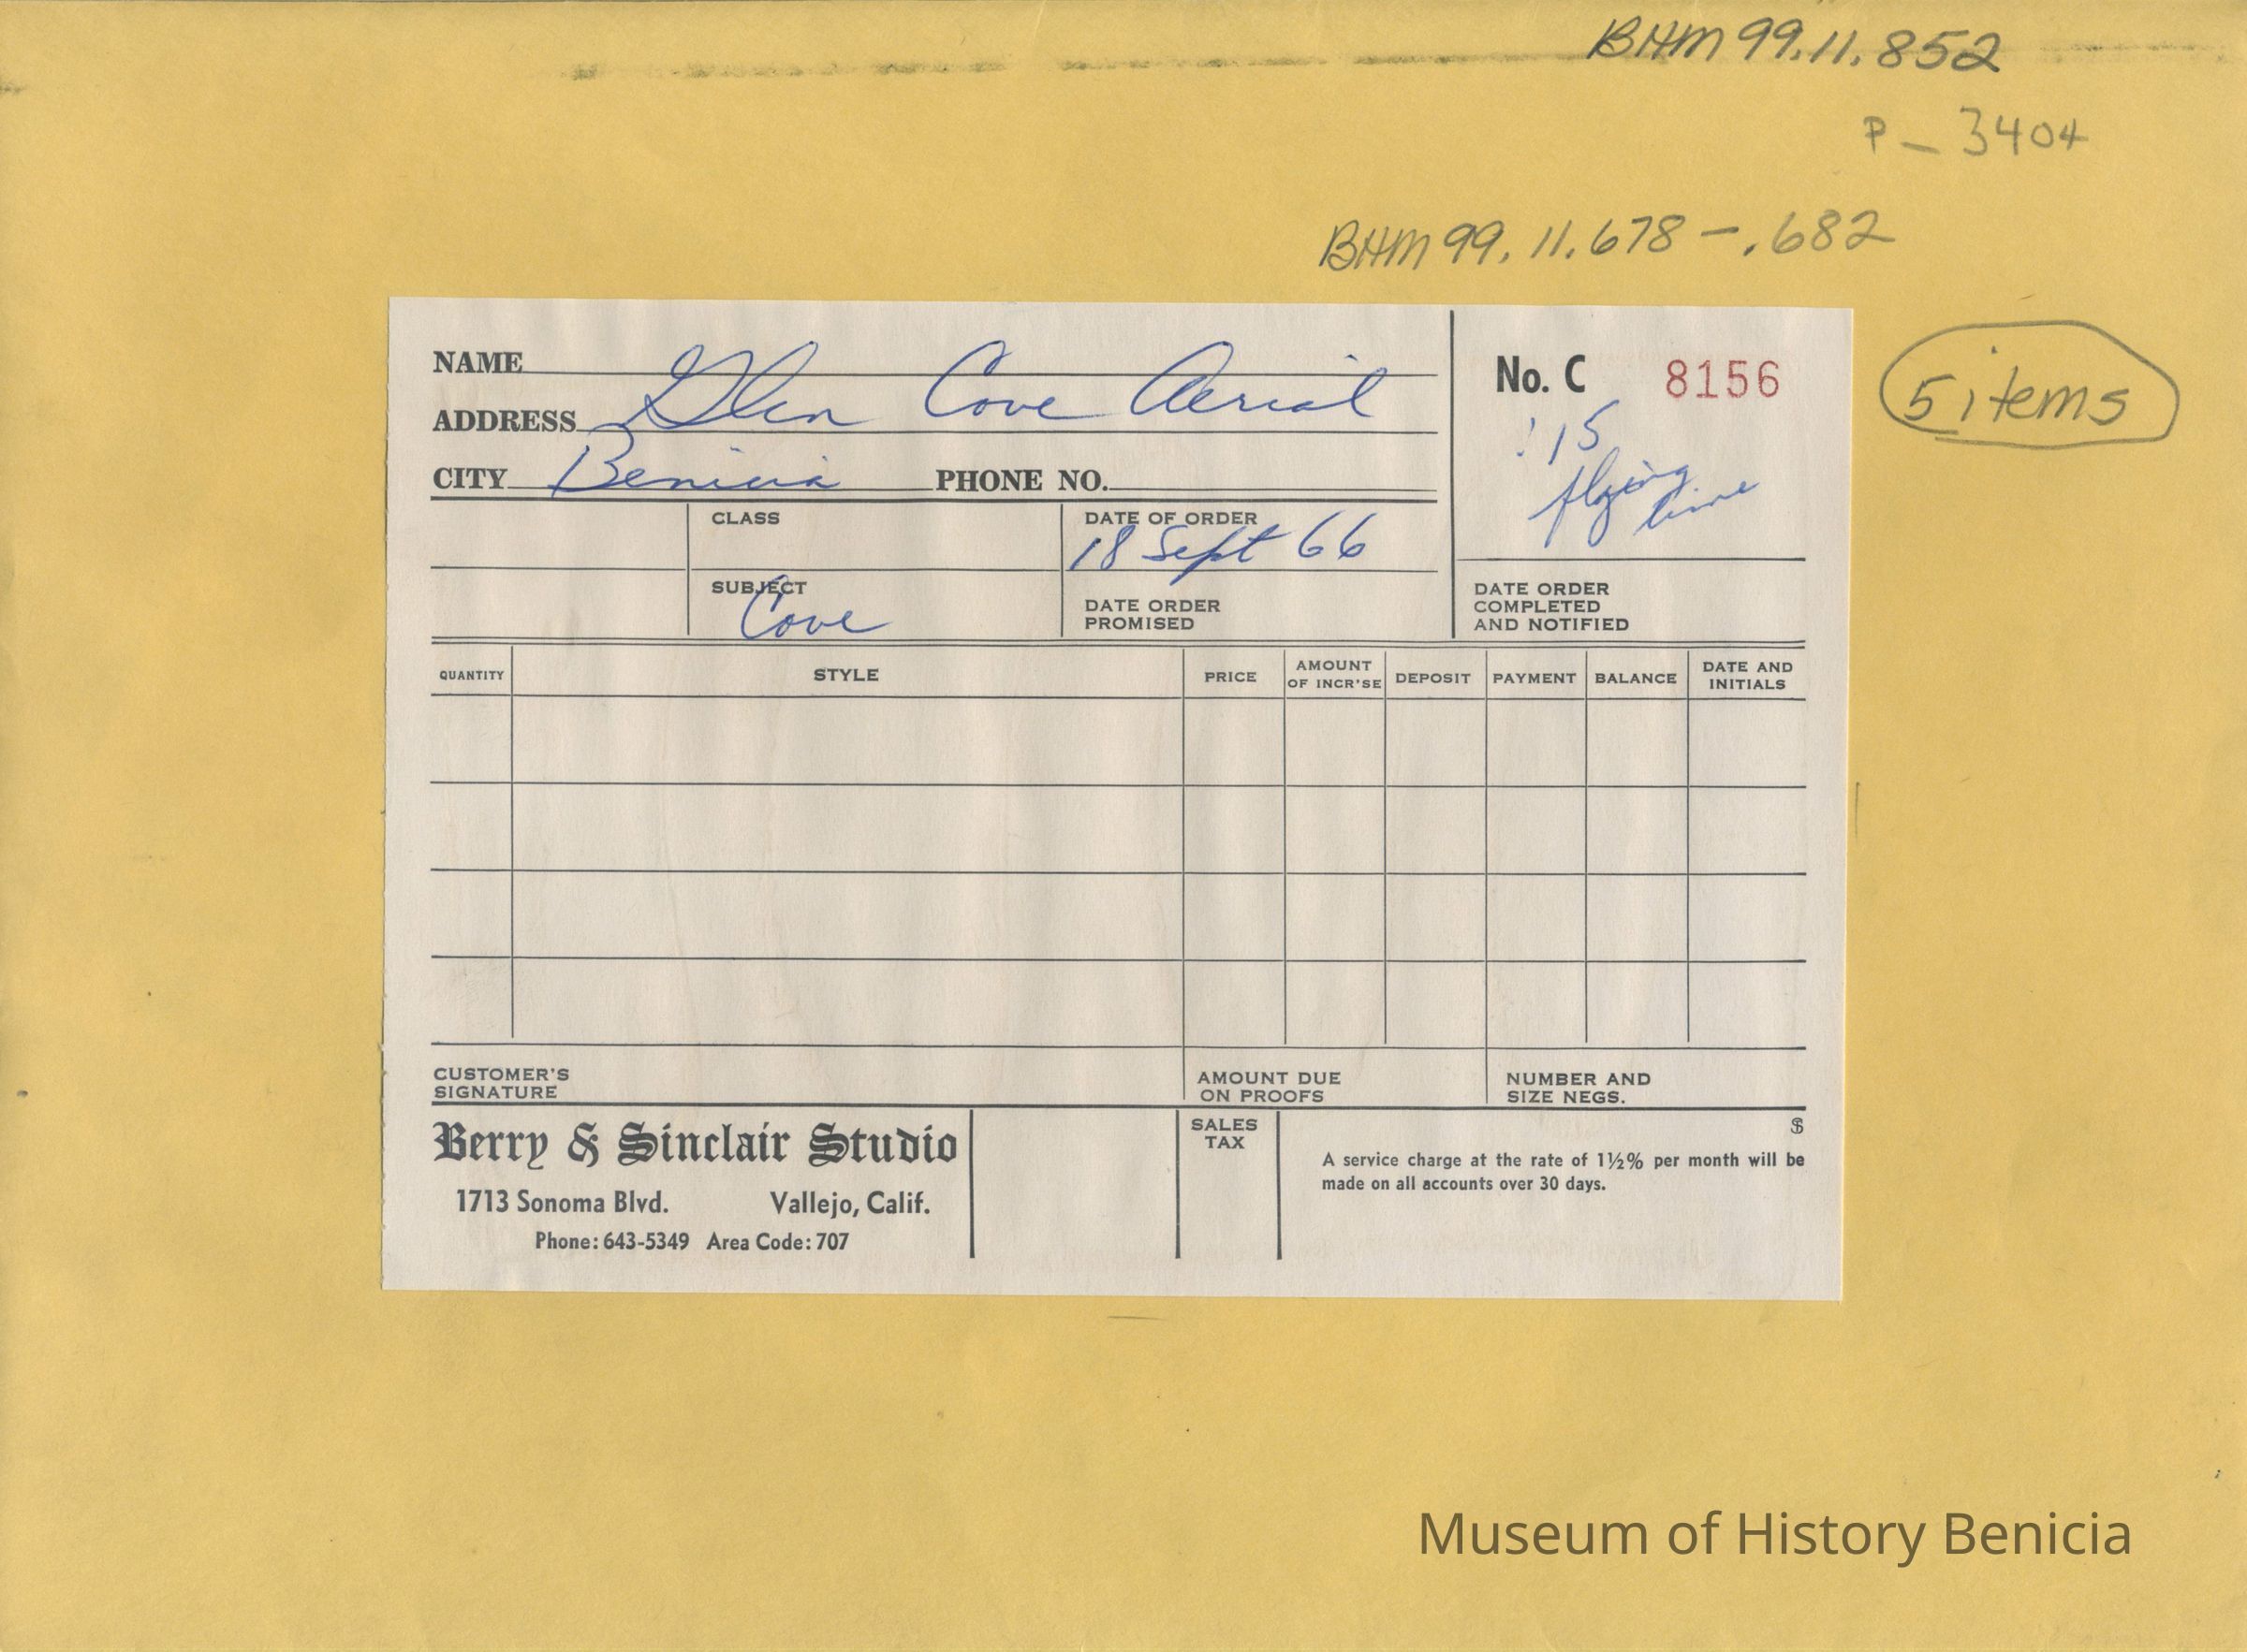 BHM 99.11.852
P - 3404
BHM 99.11.678 - .682
5 items
NAME
ADDRESS Glen Cove Aerial
CITY Benicia PHONE NO.
No. C 8156
:15
flying
time
CLASS
DATE OF ORDER
18 Sept 66
SUBJECT
Cove
DATE ORDER
PROMISED
DATE ORDER
COMPLETED
AND NOTIFIED
QUANTITY STYLE PRICE AMOUNT OF INCR'SE DEPOSIT PAYMENT BALANCE DATE AND INITIALS
CUSTOMER'S
SIGNATURE
AMOUNT DUE
ON PROOFS
NUMBER AND
SIZE NEGS.
Berry & Sinclair Studio
1713 Sonoma Blvd. Vallejo, Calif.
Phone: 643-5349 Area Code: 707
SALES
TAX
$
A service charge at the rate of 1½% per month will be
made on all accounts over 30 days.
Museum of History Benicia